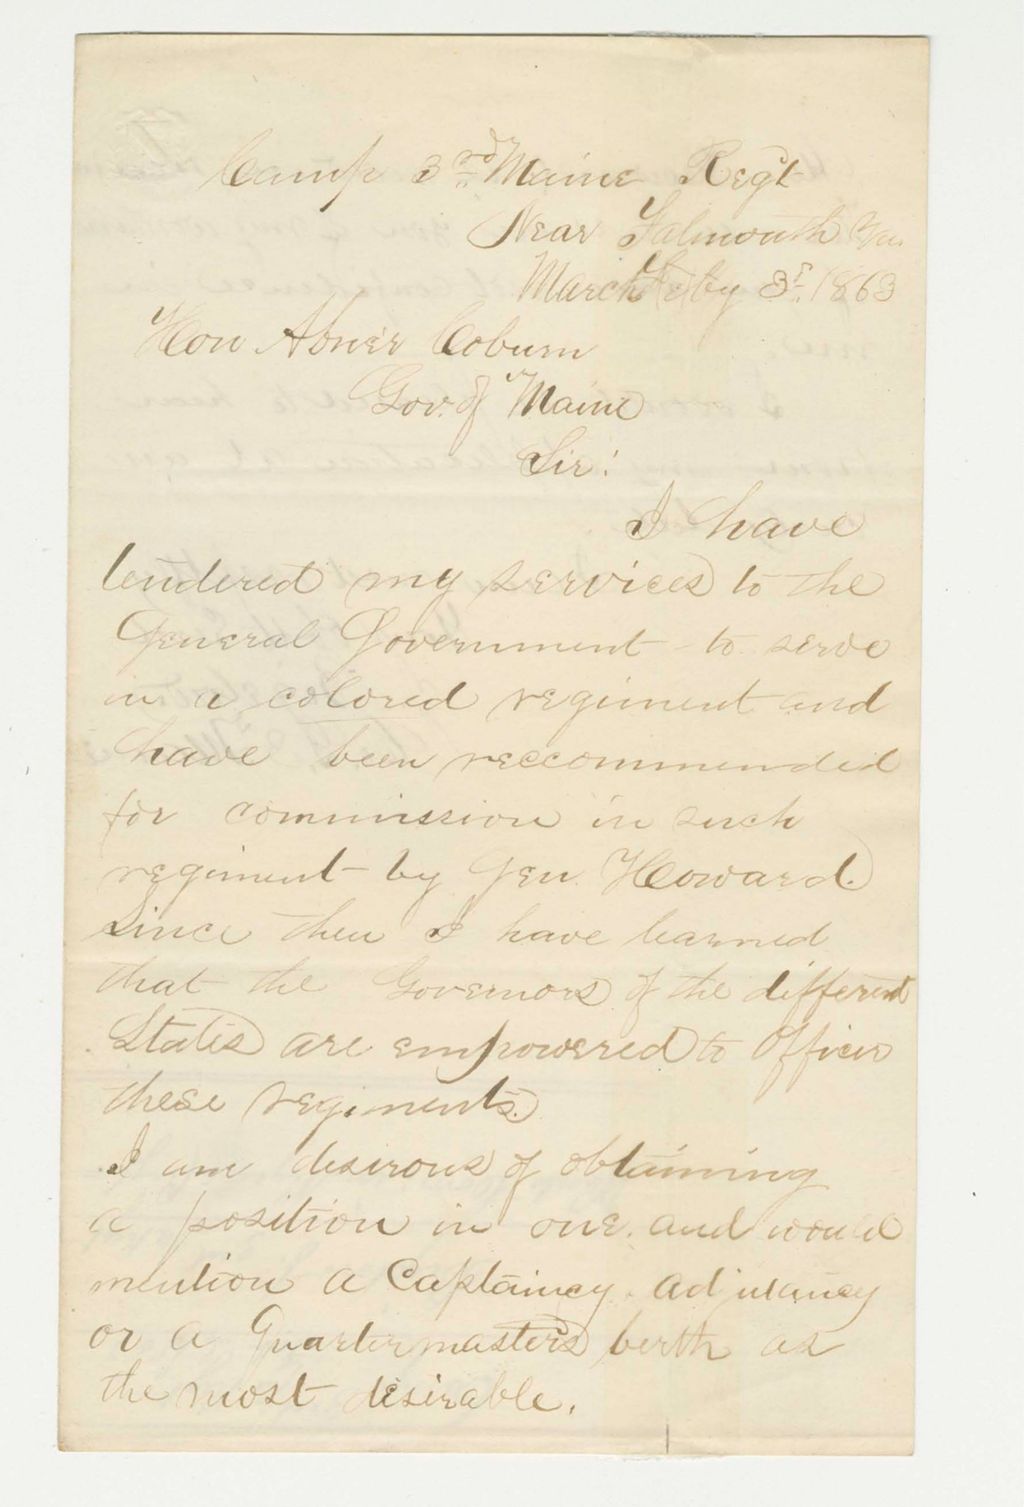 Camp 3rd Maine Regt
Near Falmouth Va.
March 3rd. 1863
Hon Abner Coburn
Gov. of Maine
Sir:
I have
tendered my services to the
General Government to serve
in a colored regiment and
have been reccommended
for commission in such
regiment by Gen. Howard.
Since then I have learned
that the Governors of the different
States are empowered to Officer
these regiments.
I am desirous of obtaining
a position in one. and would
mention a Captaincy. adjutancy
or a Quartermasters berth as
the most desirable.